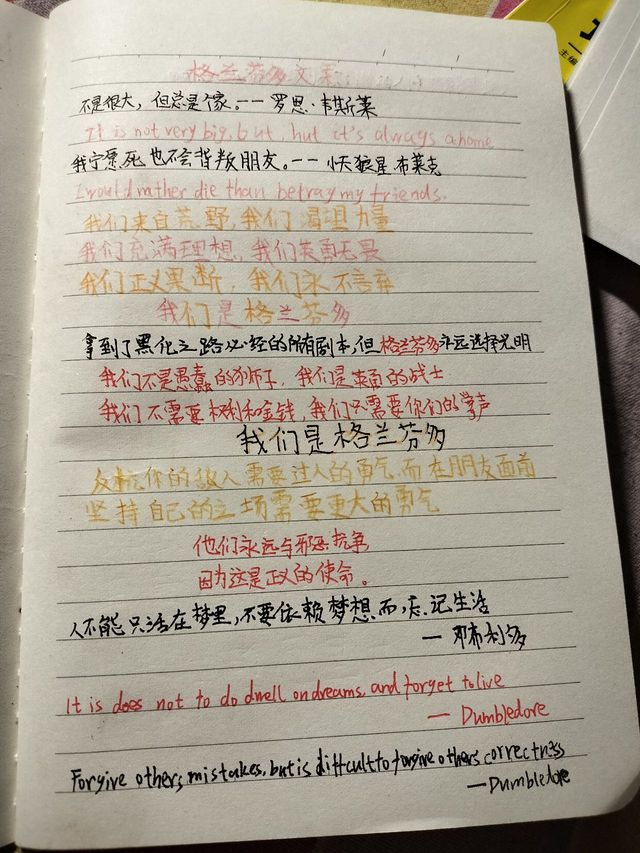 格兰芬多文案
不是很大，但总是个家。-- 罗恩·韦斯莱
It is not very big, but, but it's always a home
我宁愿死也不会背叛朋友。-- 小天狼星·布莱克
I would rather die than betray my friends.
我们来自荒野,我们渴望力量
我们充满理想，我们英勇无畏
我们正义果断，我们永不言弃
我们是格兰芬多
拿到了黑化之路必经的所有剧本,但格兰芬多永远选择光明
我们不是愚蠢的狮子，我们是英勇的战士
我们不需要权利和金钱,我们只需要你们的掌声
我们是格兰芬多
反抗你的敌人需要过人的勇气,而在朋友面前
坚持自己的立场需要更大的勇气
他们永远与邪恶抗争
因为这是正义的使命。
人不能只活在梦里,不要依赖梦想而,忘记生活
— 邓布利多
It is does not to do dwell on dreams, and forget to live
— Dumbledore
Forgive others, mistakes, but is difficult to forgive others correctness
—Dumbledore
主编